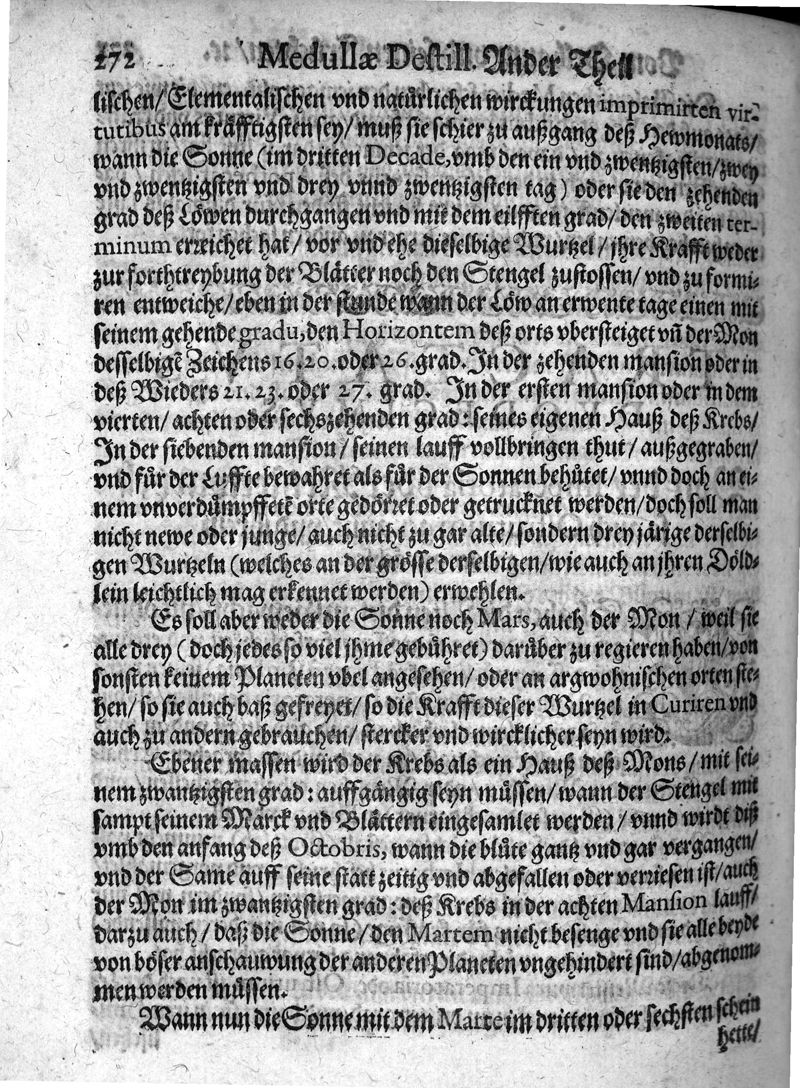 272 Medullæ Destill. Ander Theil
lischen/ Elementalischen vnd natürlichen wirckungen imprimirten vir-
tutibus am kräfftigsten sey/ muß sie schier zu außgang deß Hewmonats/
wann die Sonne (im dritten Decade, vmb den ein vnd zwentzigsten/ zwey
vnd zwentzigsten vnd drey vnnd zwentzigsten tag) oder sie den zehenden
grad deß Löwen durchgangen vnd mit dem eilfften grad/ den zweiten ter-
minum erreichet hat/ vor vnd ehe dieselbige Wurtzel/ jhre Krafft weder
zur forthtreybung der Blätter noch den Stengel zustossen/ vnd zu formi-
ren entweiche/ eben in der stunde wann der Löw an erwente tage einen mit
seinem gehende gradu, den Horizontem deß orts vbersteiget vñ der Mon
desselbigẽ Zeichens 16. 20. oder 26. grad. In der zehenden mansion oder in
deß Wieders 21. 23. oder 27. grad. In der ersten mansion oder in dem
vierten/ achten oder sechszehenden grad: seines eigenen Hauß deß Krebs/
In der siebenden mansion/ seinen lauff vollbringen thut/ außgegraben/
vnd für der Luffte bewahret als für der Sonnen behütet/ vnnd doch an ei-
nem vnverdümpffetẽ orte gedörret oder getrucknet werden/ doch soll man
nicht newe oder junge/ auch nicht zu gar alte/ sondern drey järige derselbi-
gen Wurtzeln (welches an der grösse derselbigen/ wie auch an jhren Döld-
lein leichtlich mag erkennet werden) erwehlen.
Es soll aber weder die Sonne noch Mars, auch der Mon/ weil sie
alle drey (doch jedes so viel jhme gebühret) darüber zu regieren haben/ von
sonsten keinem Planeten vbel angesehen/ oder an argwohnischen orten ste-
hen/ so sie auch baß gefreyet/ so die Krafft dieser Wurtzel in Curiren vnd
auch zu andern gebrauchen/ stercker vnd wircklicher seyn wird.
Ebener massen wird der Krebs als ein Hauß deß Mons/ mit sei-
nem zwantzigsten grad: auffgängig seyn müssen/ wann der Stengel mit
sampt seinem Marck vnd Blättern eingesamlet werden/ vnnd wirdt diß
vmb den anfang deß Octobris, wann die blüte gantz vnd gar vergangen/
vnd der Same auff seine statt zeitig vnd abgefallen oder verriesen ist/ auch
der Mon im zwantzigsten grad: deß Krebs in der achten Mansion lauff/
darzu auch/ daß die Sonne/ den Martem nicht besenge vnd sie alle beyde
von böser anschauwung der anderen Planeten vngehindert sind/ abgenom-
men werden müssen.
Wann nun die Sonne mit dem Marte im dritten oder sechsten schein
hette/